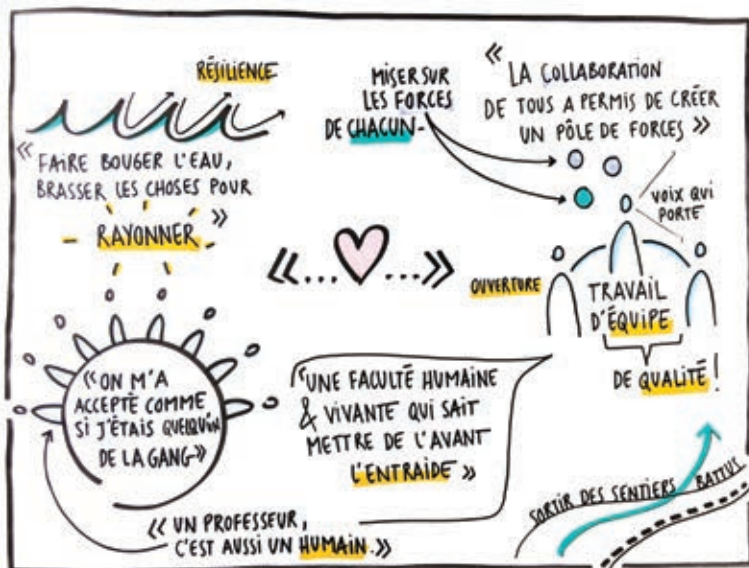 RÉSILIENCE
« FAIRE BOUGER L'EAU,
BRASSER LES CHOSES POUR
RAYONNER »
MISER SUR
LES FORCES
DE CHACUN-
« LA COLLABORATION
DE TOUS A PERMIS DE CRÉER
UN PÔLE DE FORCES »
VOIX QUI
PORTE
«...
...»
OUVERTURE
TRAVAIL
D'ÉQUIPE
DE QUALITÉ !
« ON M'A
ACCEPTÉ COMME
SI J'ÉTAIS QUELQU'UN
DE LA GANG »
« UNE FACULTÉ HUMAINE
& VIVANTE QUI SAIT
METTRE DE L'AVANT
L'ENTRAIDE »
« UN PROFESSEUR,
C'EST AUSSI UN HUMAIN. »
SORTIR DES SENTIERS BATTUS